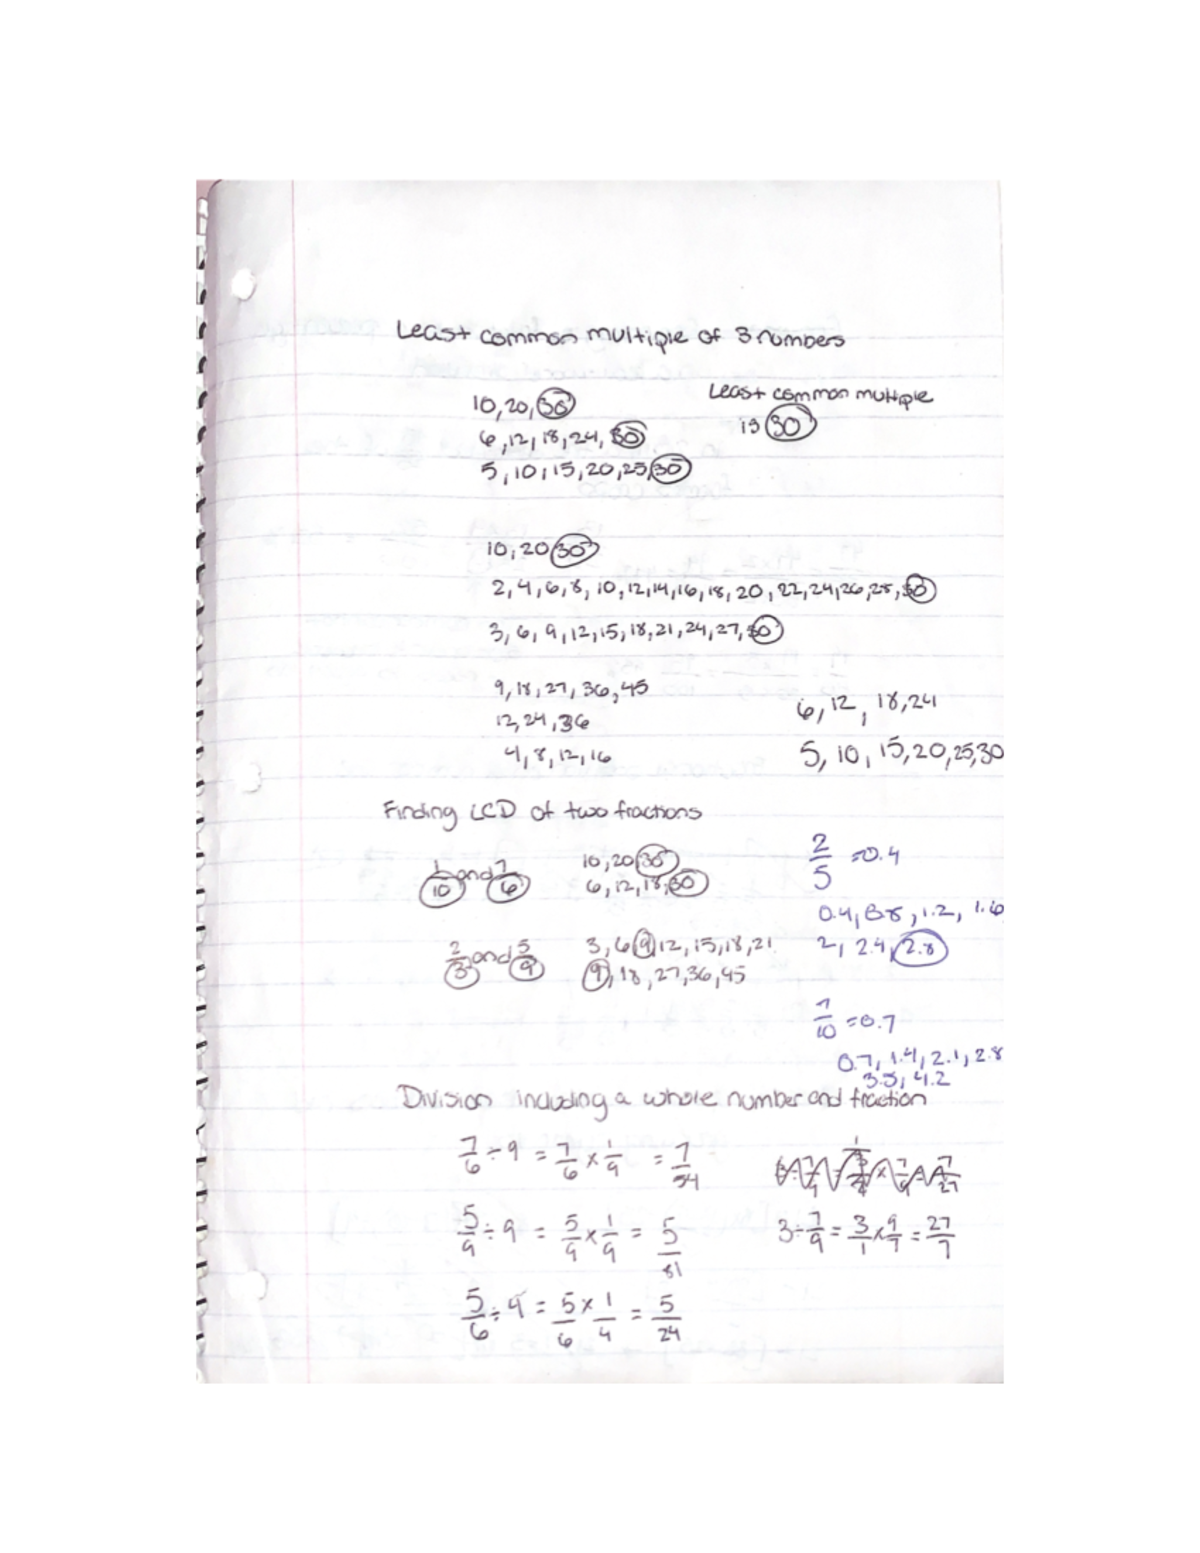 Least common multiple of 3 numbers
10, 20, 30
6, 12, 18, 24, 30
5, 10, 15, 20, 25, 30
Least common multiple
is 30
10, 20 30
2, 4, 6, 8, 10, 12, 14, 16, 18, 20, 22, 24, 26, 28, 30
3, 6, 9, 12, 15, 18, 21, 24, 27, 30
9, 18, 27, 36, 45
12, 24, 36
4, 8, 12, 16
6, 12, 18, 24
5, 10, 15, 20, 25, 30
Finding LCD of two fractions
1/10 and 7/6
10, 20 30
6, 12, 18, 30
2/3 and 5/9
3, 6 9, 12, 15, 18, 21
9, 18, 27, 36, 45
2/5 = 0.4
0.4, 0.8, 1.2, 1.6
2, 2.4, 2.8
7/10 = 0.7
0.7, 1.4, 2.1, 2.8
3.5, 4.2
Division including a whole number and fraction
7/6 ÷ 9 = 7/6 × 1/9 = 7/54
5/9 ÷ 9 = 5/9 × 1/9 = 5/81
5/6 ÷ 4 = 5/6 × 1/4 = 5/24
3 ÷ 7/9 = 3/1 × 9/7 = 27/7